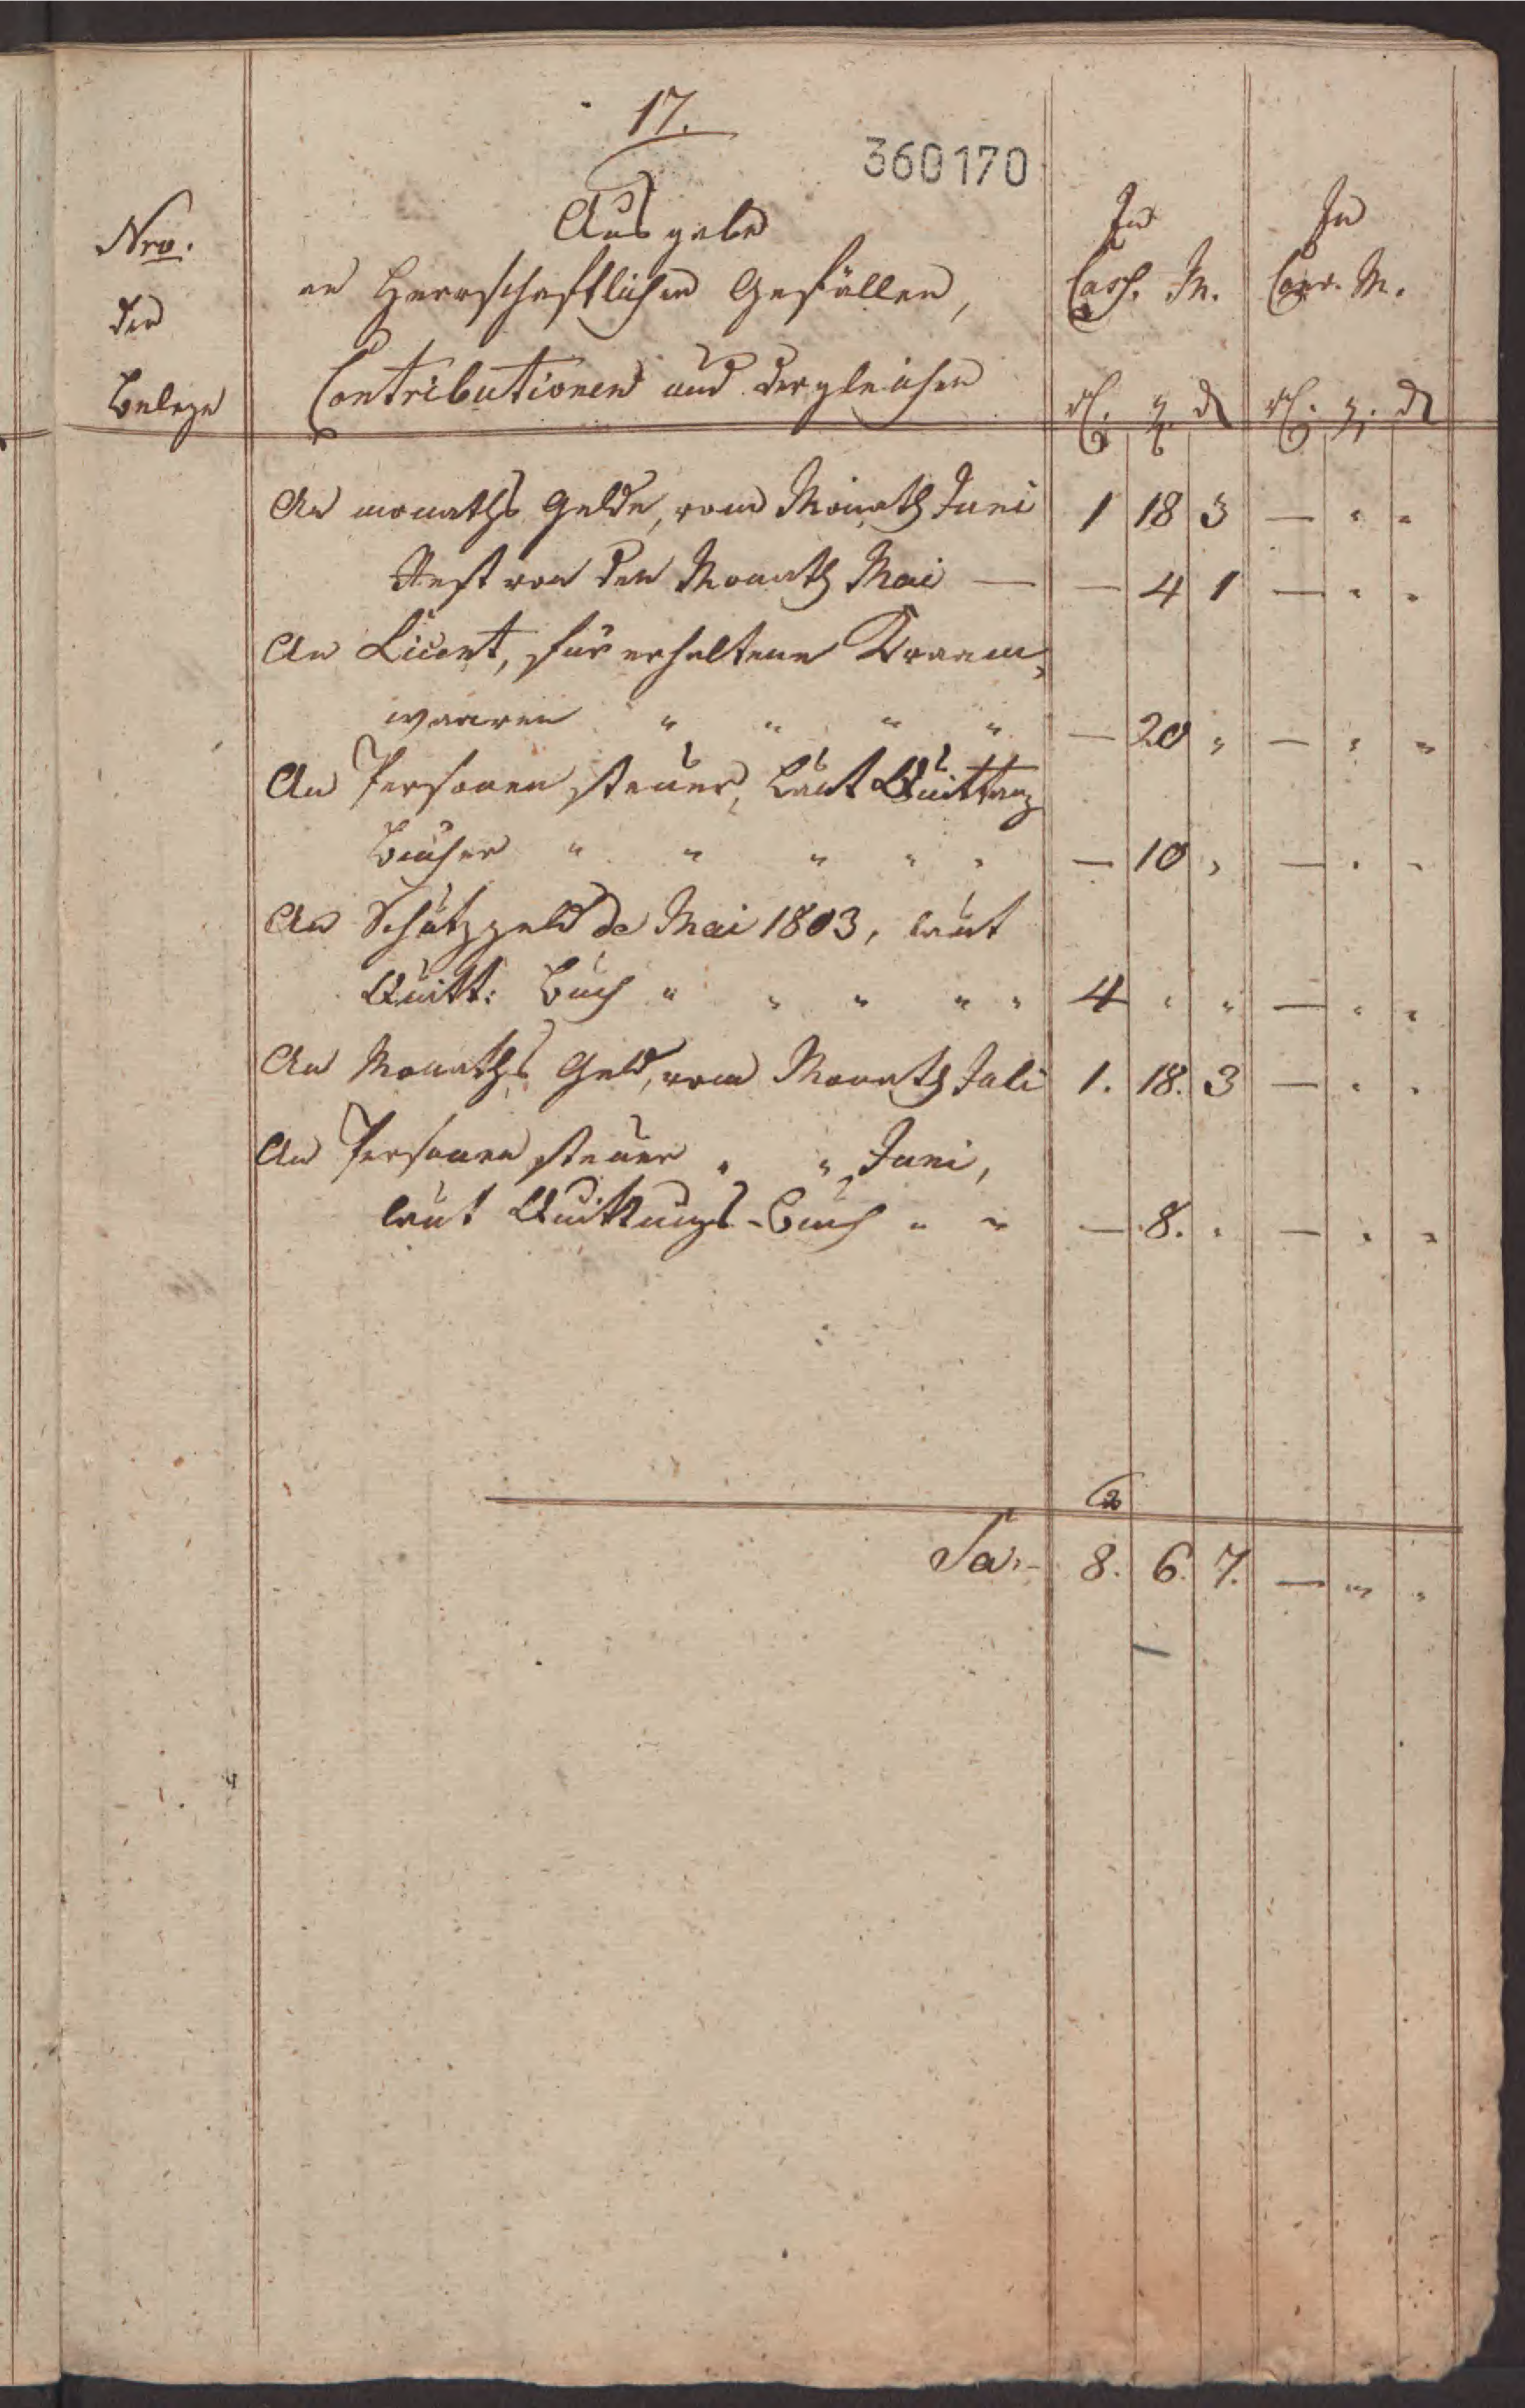 17.
360170
Nro.
der
Belege
Ausgabe
an Herrschaftlichen Gefällen,
Contributionen und dergleichen
In
Cass. M.
In
Conv. M.
rl. g. d
rl. g. d
An monaths Gelde, vom Monath Juni 1 18 3 — " "
Rest von den Monath Mai — — 4 1 — " "
An Licent, für erhaltene Kraam-
waaren " " " " — 20 " — " "
An Personen steuer, laut Quittang
Bücher " " " " " — 10 " — " "
An Schutzgeld de Mai 1803, laut
Quitt: Buch " " " " " 4 " " — " "
An Monaths Geld, vom Monath Juli 1. 18. 3 — " "
An Personen steuer " " Juni,
laut Quittungs-Buch " " — 8. " — " "
2
Sa:- 8. 6. 7. — " "